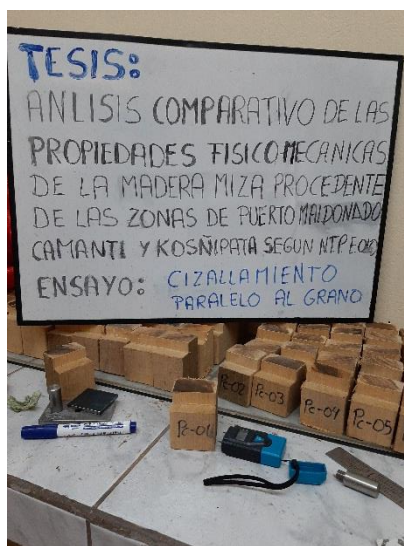 TESIS:
ANLISIS COMPARATIVO DE LAS
PROPIEDADES FISICO MECANICAS
DE LA MADERA MIZA PROCEDENTE
DE LAS ZONAS DE PUERTO MALDONADO
CAMANTI Y KOSÑIPATA SEGUN NTP E010
ENSAYO: CIZALLAMIENTO
PARALELO AL GRANO
Pc-02
Pc-03
Pc-04
Pc-05
Pc-01